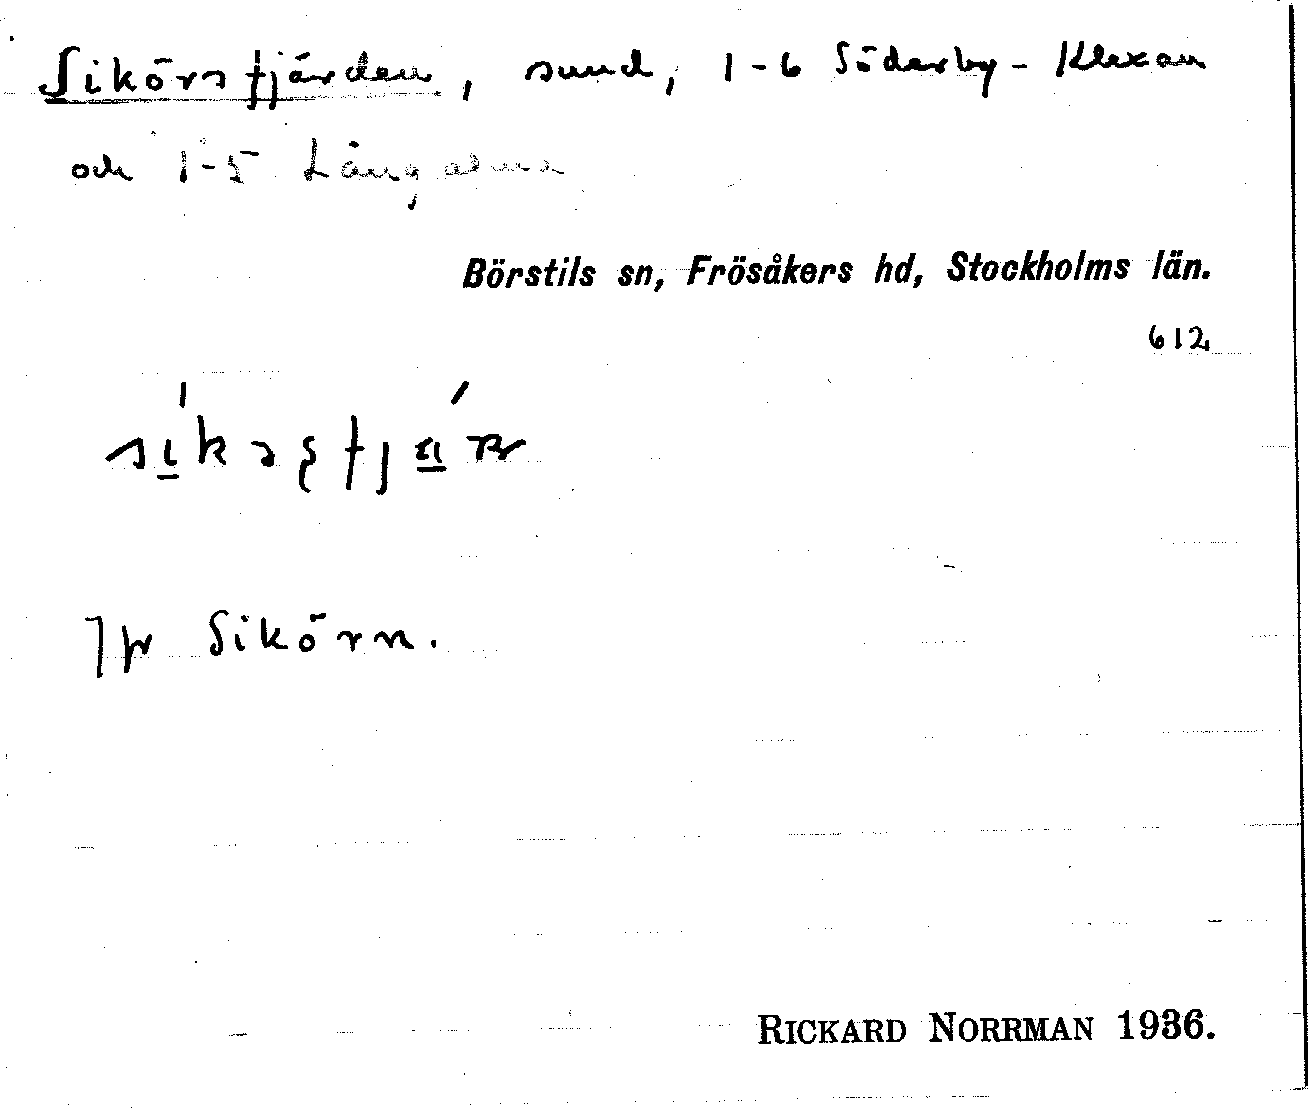 Sikörsfjärden, sund, 1-6 Söderby-Klexan
och 1-5 Långalma
Börstils sn, Frösåkers hd, Stockholms län.
612
Jfr Sikörn.
RICKARD NORRMAN 1936.